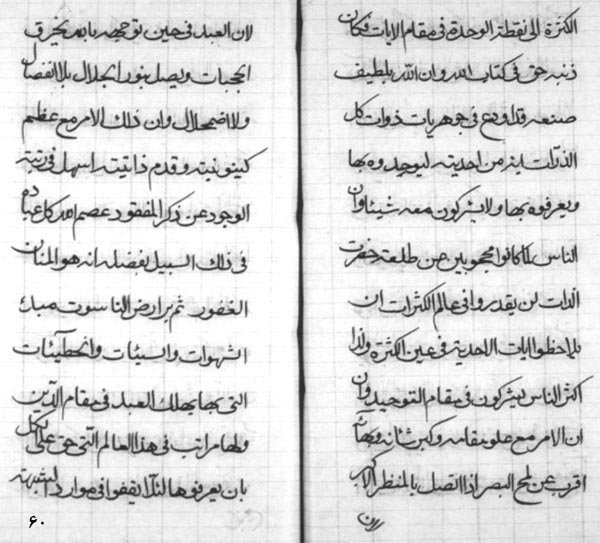 الكثرة الى نقطة الوحدة فى مقام الايات فكان
ذنبه حق فى كتاب الله وان الله بلطيف
صنعه قد اودع فى جوهريات ذوات كل
الذرات اية من احديته ليوحدوه بها
ويعرفوه بها ولا يشركون معه شيئا وان
الناس لما كانوا محجوبين عن طلعة حضرت
الذات لن يقدروا فى عالم الكثرات ان
يلاحظوا ايات الاحدية فى عين الكثرة ولذا
اكثر الناس يشركون فى مقام التوحيد وان
ان الامر مع علو مقامه وكبر شانه وبهائه
اقرب عن لمح البصر اذا اتصل بالمنظر الاكبر
لان
لان العبد فى حين توجهه بابه يخرق
الحجبات ويصل بنور الجلال بلا انفصال
ولا اضمحلال وان ذلك الامر مع عظم
كينونيته وقدم ذاتيته اسهل فى رتبة
الوجود عن ذكر المفقود عصم الله كل عباده
فى ذلك السبيل بفضله انه هو المنان
الغفور ثم بر ارض الناسوت مبدء
الشهوات والسيئات والخطيئات
التى بها يهلك العبد فى مقام الدين
ولها مراتب فى هذا العالم التى حق على الكل
بان يعرفوها لئلا يقفوا فى موارد الشبهة
۶۰